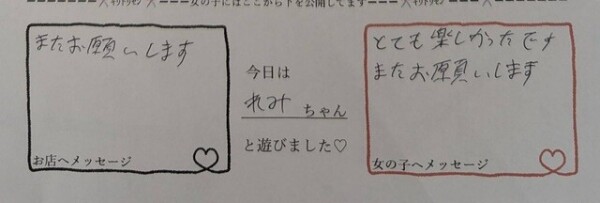 女の子にはここから下を公開してます
またお願いします
お店へメッセージ
今日は
れみちゃん
と遊びました♡
とても楽しかったです
またお願いします
女の子へメッセージ